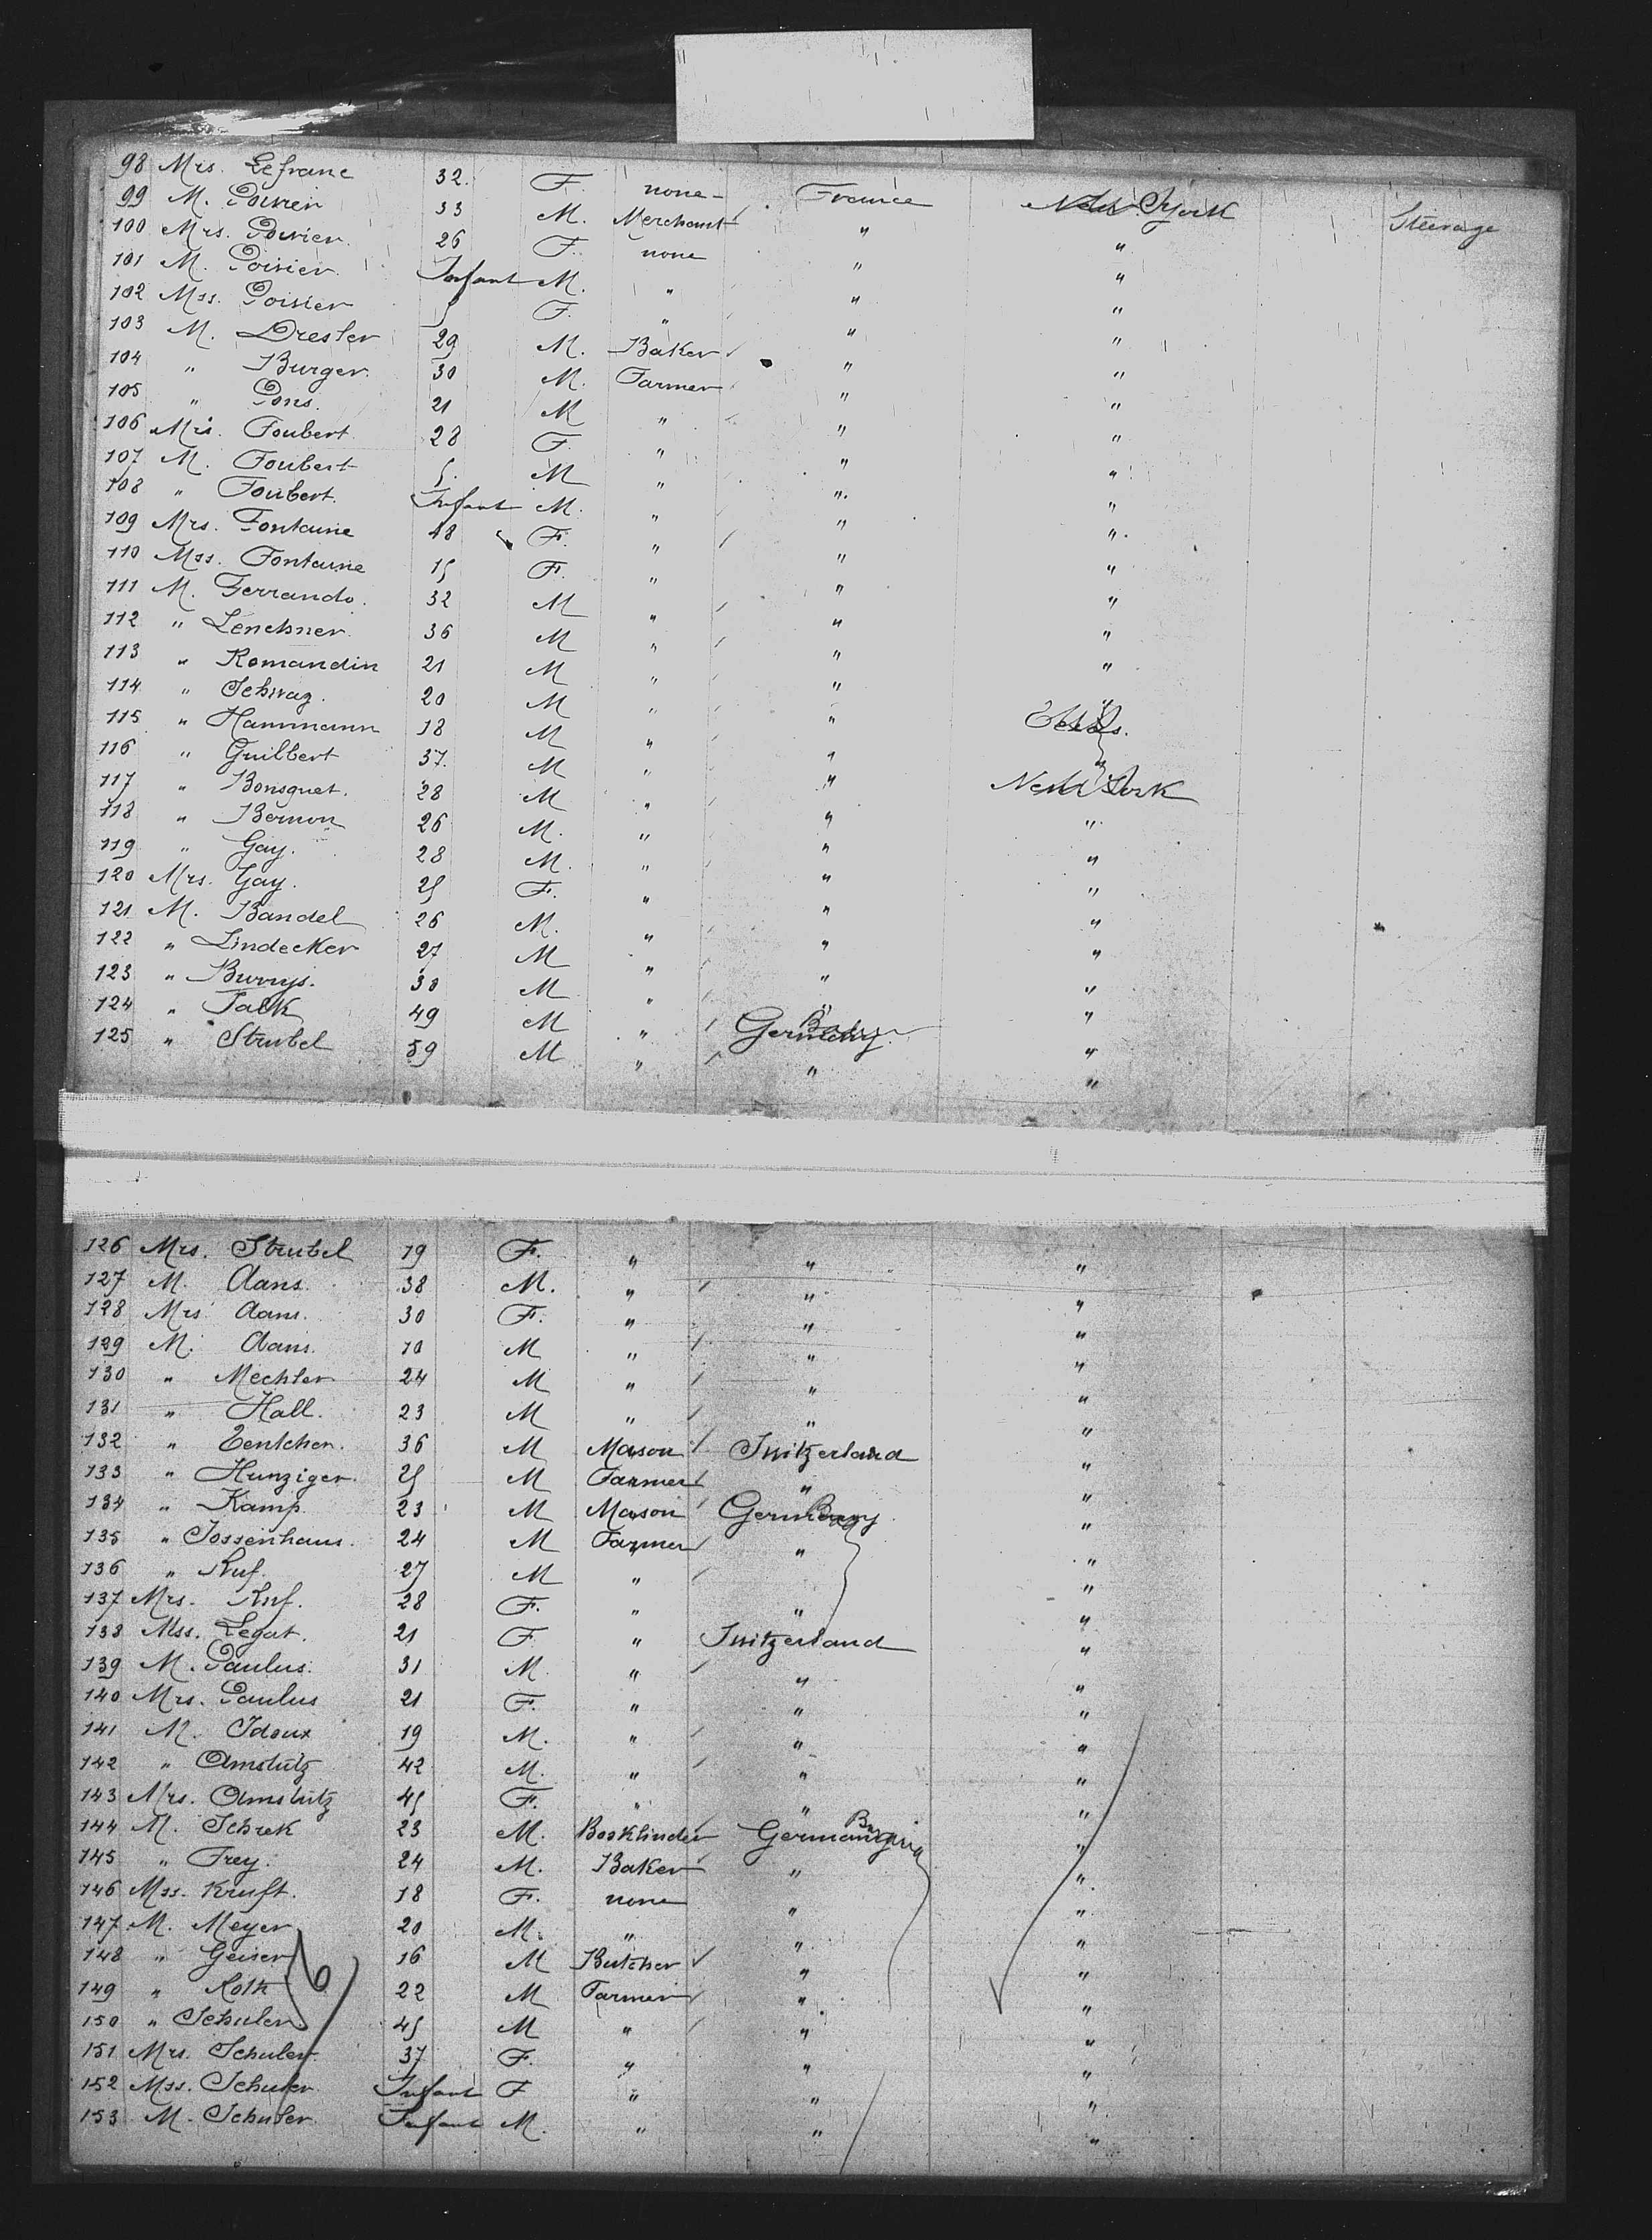 98 Mrs. Lefranc 32. F. none - France New York Steerage
99 M. Poirier 33 M. Merchant " "
100 Mrs. Poirier. 26 F. none " "
101 M. Poirier. Infant M. " " "
102 Mss. Poirier 5 F. " " "
103 M. Dresler 29 M. Baker " "
104 " Burger. 30 M. Farmer " "
105 " Pons. 21 M " " "
106 Mrs. Foubert. 28 F. " " "
107 M. Foubert 5. M " " "
108 " Foubert. Infant M. " " "
109 Mrs. Fontaine 48 F. " " "
110 Mss. Fontaine 15 F. " " "
111 M. Ferrando. 32 M " " "
112 " Lenchner. 36 M " " "
113 " Romandin 21 M " " "
114 " Schwaz. 20 M " " "
115 " Hammann 18 M " "
116 " Guilbert 37. M " " "
117 " Bousquet. 28 M " " New York
118 " Bernon 26 M. " " "
119 " Gay. 28 M. " " "
120 Mrs. Gay. 25 F. " " "
121 M. Bandel 26 M. " " "
122 " Lindecker 27 M " " "
123 " Burrys. 30 M " " "
124 " Falk 49 M " Germany "
125 " Strubel 59 M " " "
126 Mrs. Strubel 19 F. " " "
127 M. Aans. 38 M. " " "
128 Mrs. Aans. 30 F. " " "
129 M. Aans. 10 M " " "
130 " Mechler 24 M " " "
131 " Hall. 23 M " " "
132 " 36 M Mason Switzerland "
133 " Hunziger. 25 M Farmer " "
134 " Kamp. 23 M Mason Germany "
135 " Jossenhans. 24 M Farmer " "
136 " Ruf. 27 M " "
137 Mrs. Ruf. 28 F. " " "
138 Mss. Legat. 21 F " Switzerland "
139 M. Paulus. 31 M. " " "
140 Mrs. Paulus 21 F. " " "
141 M. Idoux 19 M. " " "
142 " Amstutz 42 M. " " "
143 Mrs. Amstutz 45 F. " " "
144 M. Schrek 23 M. Bookbinder Germany "
145 " Frey. 24 M. Baker " "
146 Mss. Kruft. 18 F. none " "
147 M. Meyer 20 M. " " "
148 " Geiser 16 M Butcher " "
149 " Roth 22 M Farmer " "
150 " Schuler 45 M " " "
151 Mrs. Schuler. 37 F. " " "
152 Mss. Schuler Infant F " " "
153 M. Schuler. Infant M. " " "